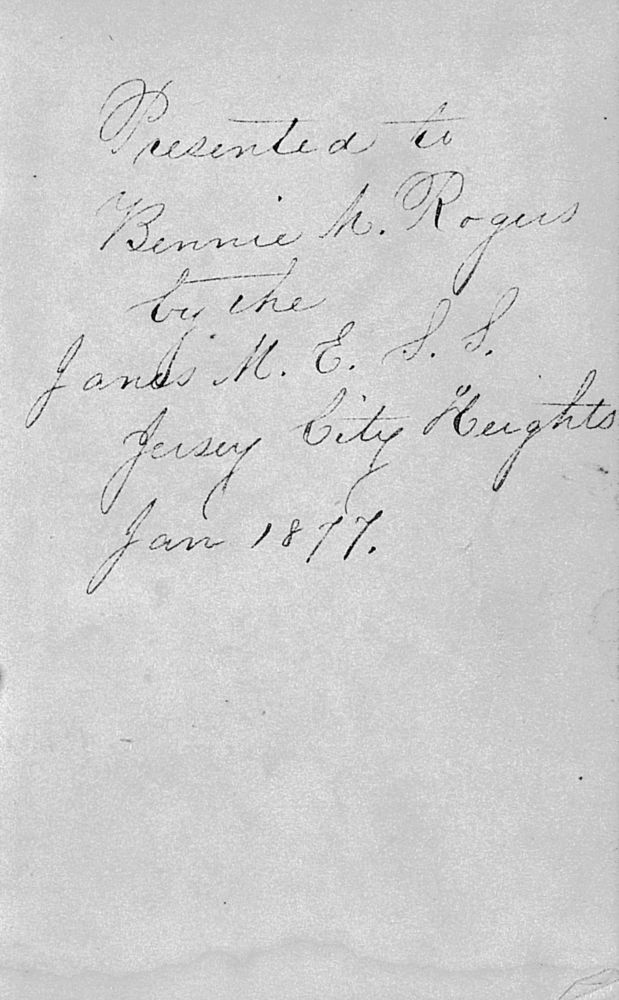 Presented to
Bennie M. Rogers
by the
Janes M. E. S. S.
Jersey City Heights
Jan 1877.